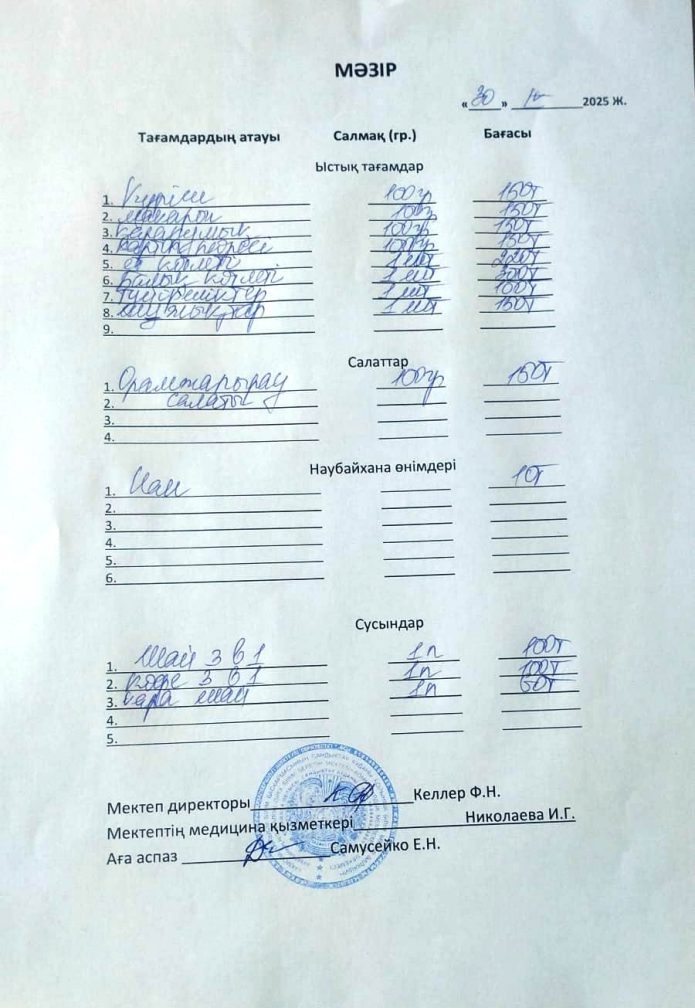 МӘЗІР
«30» 2025 Ж.
Тағамдардың атауы Салмақ (гр.) Бағасы
Ыстық тағамдар
1. Күріш 100гр 150т
2. макарон 100гр 150т
3. қарақұмық 100гр 150т
4. картоп пюресі 100гр 150т
5. ет котлеті 1 шт 220т
6. Балық котлеті 1 шт 300т
7. 1 шт 100т
8. 1 шт 150т
9.
Салаттар
1. Орамжапырақ 100гр 150т
2. салаты
3.
4.
Наубайхана өнімдері
1. Нан 10т
2.
3.
4.
5.
6.
Сусындар
1. Шай 3 в 1 1п 100т
2. кофе 3 в 1 1п 100т
3. қара шай 1п 50т
4.
5.
Мектеп директоры Келлер Ф.Н.
Мектептің медицина қызметкері Николаева И.Г.
Аға аспаз Самусейко Е.Н.